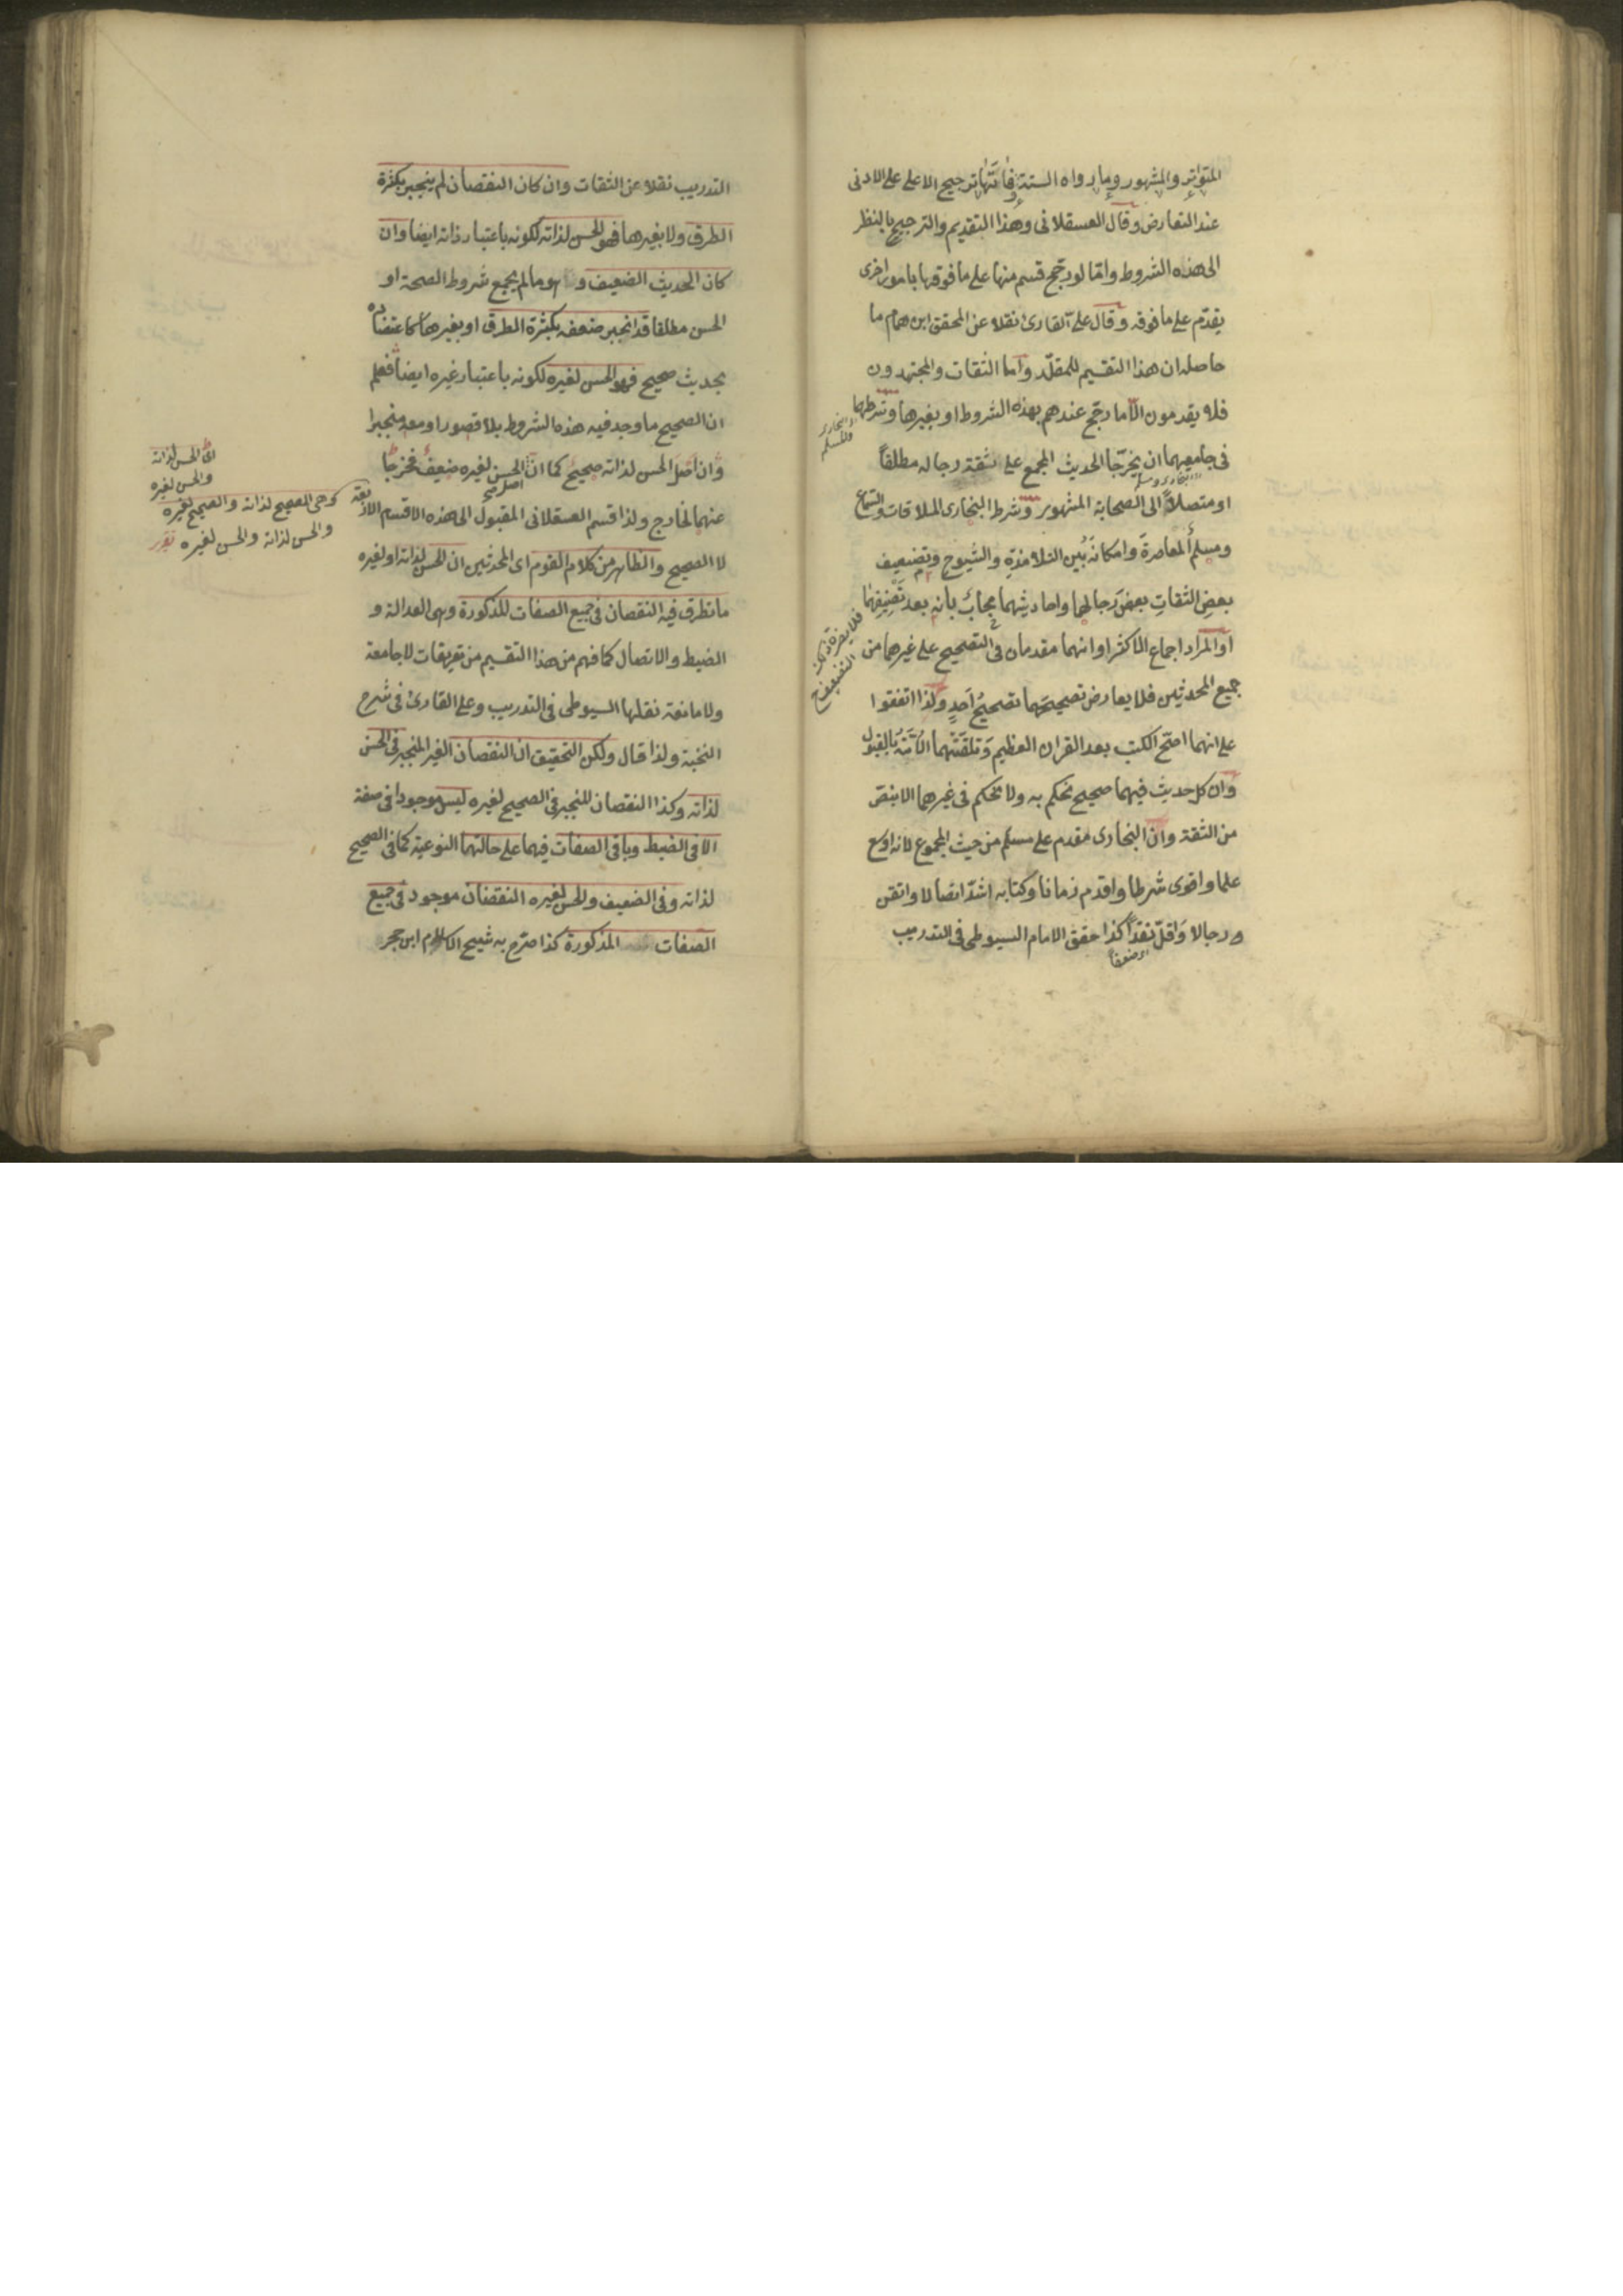 المتواتر والمشهور وما رواه الستة فائدتها ترجيح الاعلى على الادنى
عند التعارض وقال العسقلانى وهذا التقديم والترجيح بالنظر
الى هذه الشروط وامّا لو رجّح قسم منها على ما فوقها بامور اخرى
يقدّم على ما فوقه وقال على القارئ نقلا عن المحقق ابن همام ما
حاصله ان هذا التقسيم للمقلّد واما الثقات والمجتهدون
فلا يقدمون الّا ما رجّح عندهم بهذه الشروط او بغيرها وشرطهما
اى البخارى والمسلم
فى جامعيهما ان يخرّجا الحديث المجمع على ثقة رجاله مطلقاً
او متصلاً الى الصحابة المشهور وشرط البخارى الملاقات والسّماع
ومسلم المعاصرة وامكانه بين التلامذة والشيوخ وتضعيف
بعض الثقات بعض رجالهما واحاديثهما مجاب بانه بعد تصنيفهما
فلا يضره ذلك التضعيف صح
او المراد اجماع الاكثر او انهما مقدمان فى التصحيح على غيرهما من
جميع المحدثين فلا يعارض تصحيحهما تصحيح احد ولذا اتفقوا
على انهما اصحّ الكتب بعد القران العظيم وتلقّتهما الامّة بالقبول
وان كل حديث فيهما صحيح نحكم به ولا نحكم فى غيرهما الا بنصّ
من الثقة وان البخارى مقدم على مسلم من حيث المجموع لانه اوسع
علما واقوى شرطا واقدم زمانا وكتابه اشدّ اتصالا واتقن
رجالا واقلّ نقداً كذا حقق الامام السيوطى فى التدريب
اى ضعفاً
التدريب نقلا عن الثقات وان كان النقصان لم ينجبر بكثرة
الطرق ولا بغيرها فهو الحسن لذاته لكونه باعتبار ذاته ايضا وان
كان الحديث الضعيف و هو ما لم يجمع شروط الصحة او
الحسن مطلقا قد انجبر ضعفه بكثرة الطرق او بغيرها كاعتضاده
بحديث صحيح فهو الحسن لغيره لكونه باعتبار غيره ايضا فعلم
ان الصحيح ما وجد فيه هذه الشروط بلا قصور او معه منجبرا
وان اصل الحسن لذاته صحيح كما انّ الحسن لغيره ضعيف فخرجا
اى الحسن لذاته
والحسن لغيره
عنهما لخارج ولذا قسم العسقلانى المقبول الى هذه الاقسام الاربعة
وهى الصحيح لذاته والصحيح لغيره
والحسن لذاته والحسن لغيره تقرر
لا الصحيح والظاهر من كلام القوم اى المحدثين ان الحسن لذاته او لغيره
ما تطرق فيه النقصان فى جميع الصفات المذكورة وهى العدالة و
الضبط والاتصال كما فهم من هذا التقسيم من تعريفات لا جامعة
ولا مانعة نقلها السيوطى فى التدريب وعلى القارئ فى شرح
النخبة ولذا قال ولكن التحقيق ان النقصان الغير المنجبر فى الحسن
لذاته وكذا النقصان المنجبر فى الصحيح لغيره ليس موجودا فى صفة
الا فى الضبط وباقى الصفات فيهما على حالتهما النوعية كما فى الصحيح
لذاته وفى الضعيف والحسن لغيره النقصان موجود فى جميع
الصفات المذكورة كذا صرّح به شيخ الاسلام ابن حجر